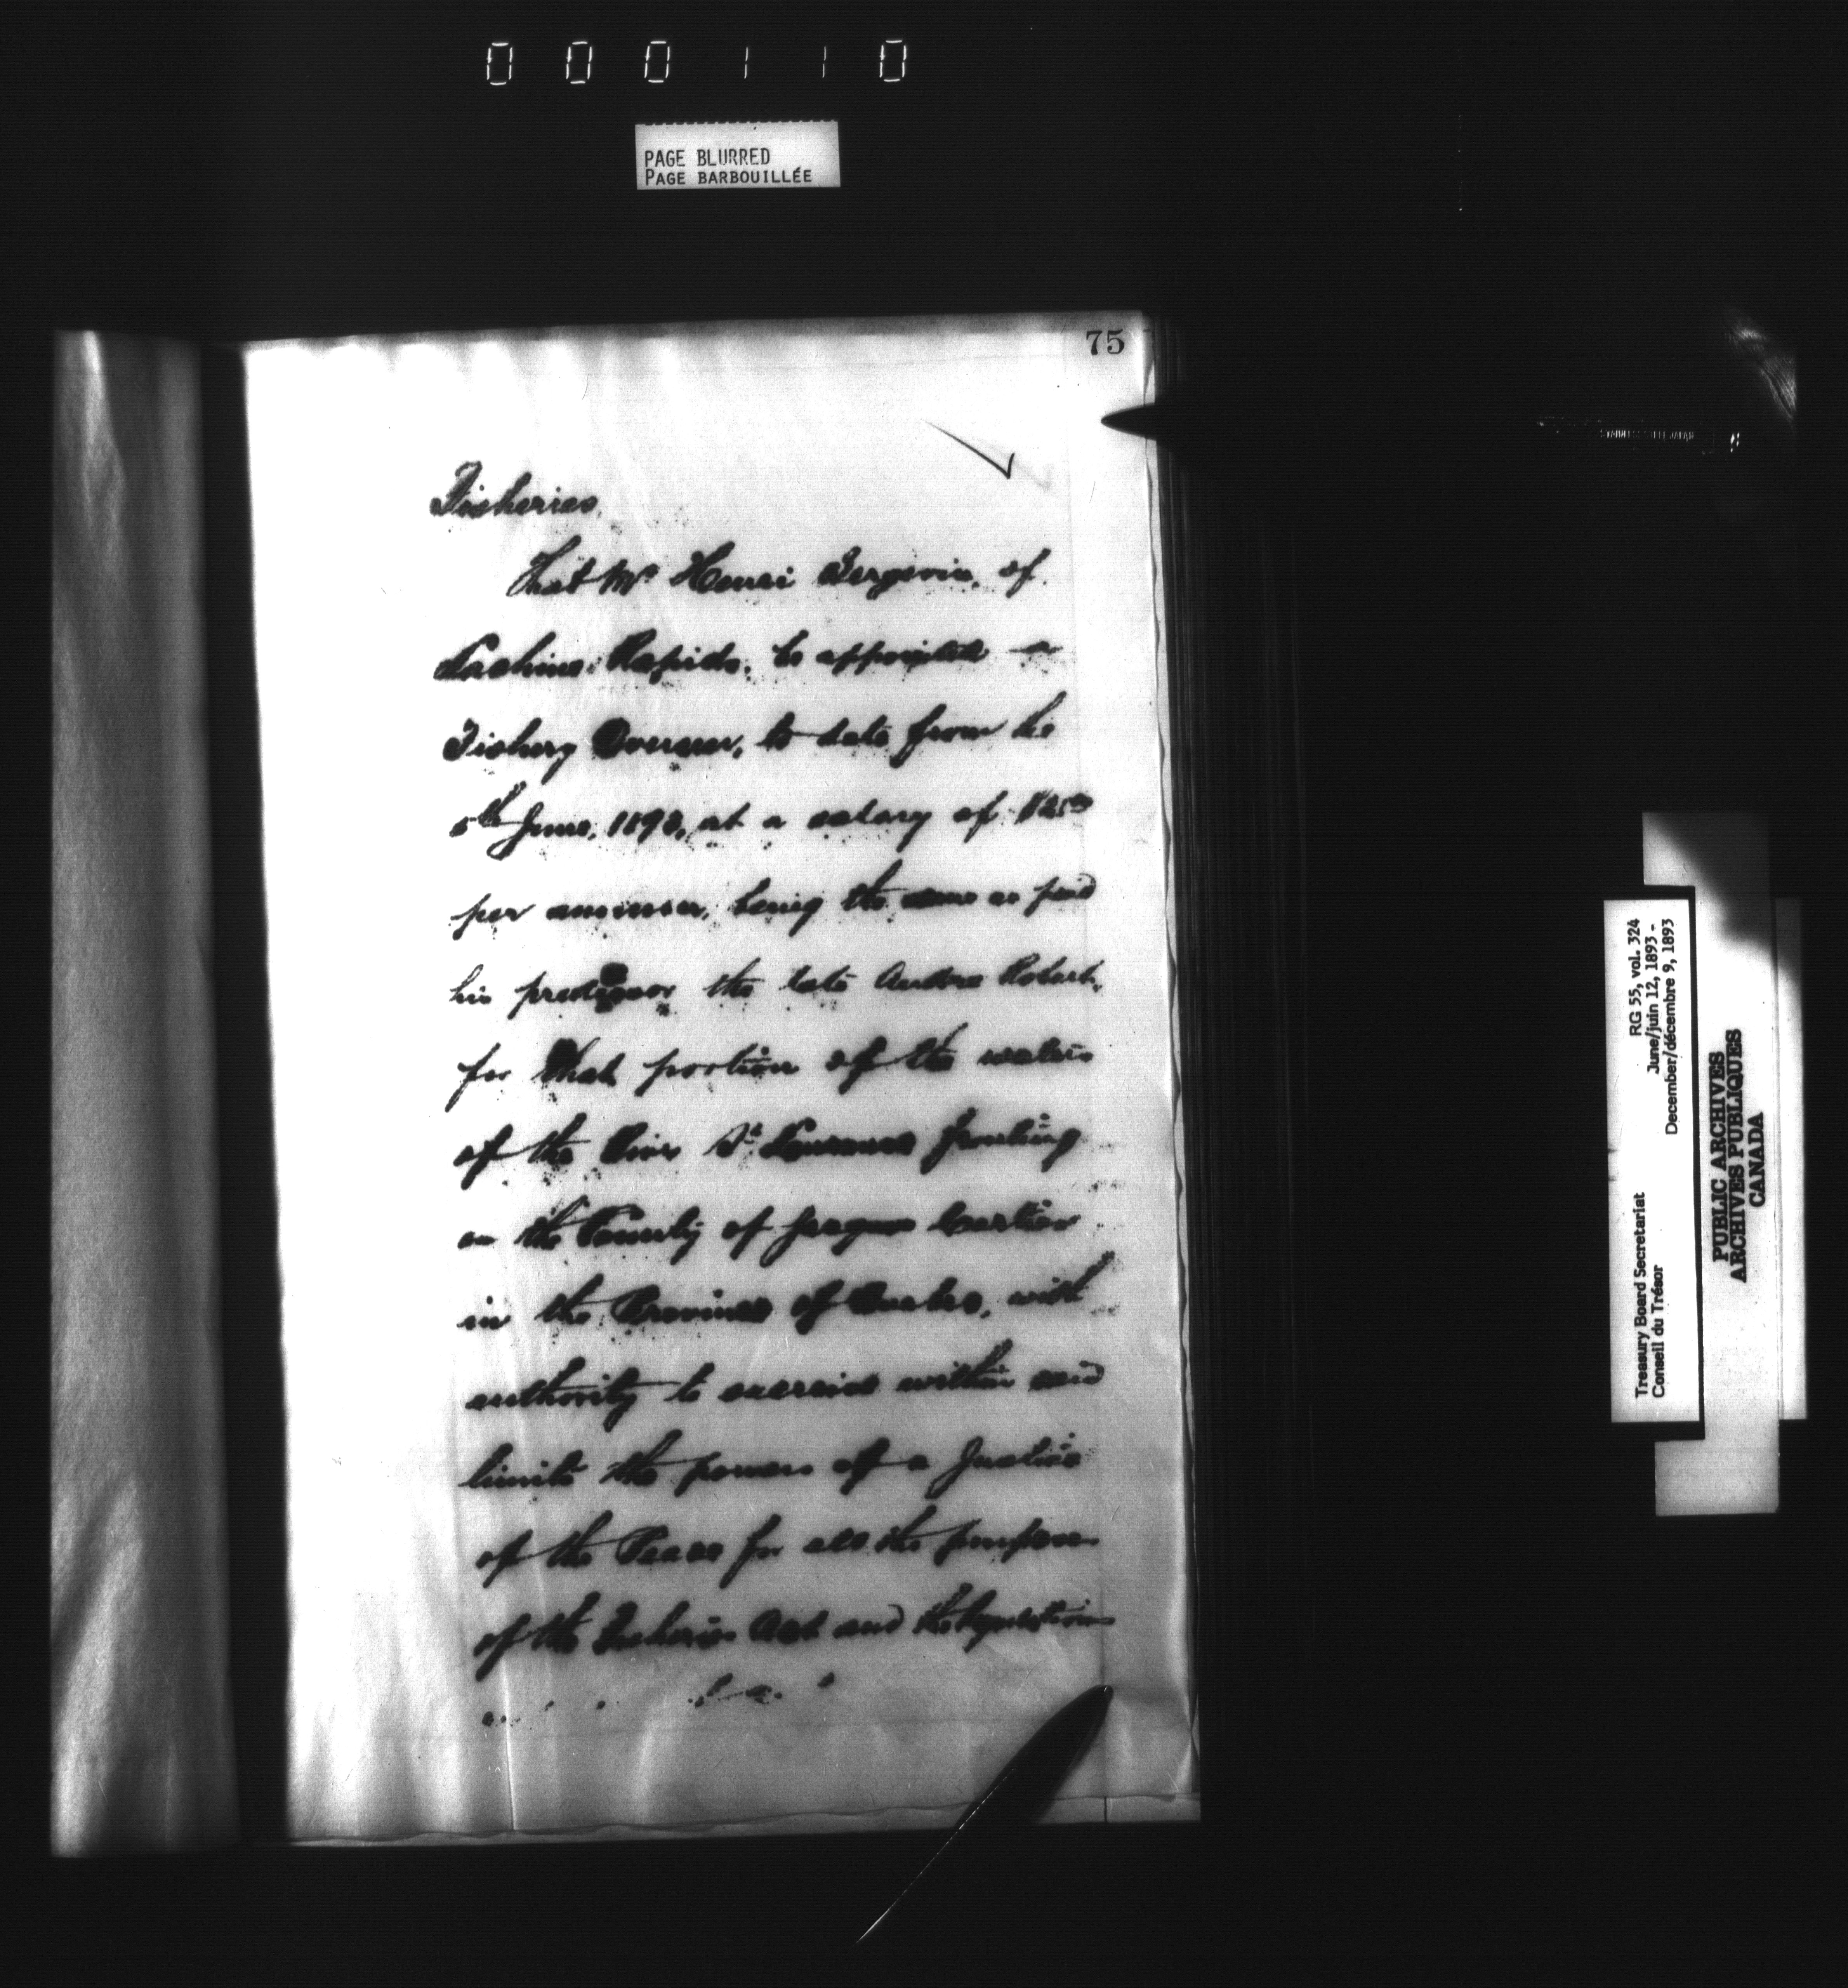 000110
PAGE BLURRED
PAGE BARBOUILLÉE
75
Fisheries.
That Mr Henri Bergevin, of
Lachine Rapids, be appointed a
Fishery Overseer, to date from the
5th June, 1893, at a salary of $125.00
per annum, being the same as paid
his predecessor the late Andre Robert,
for that portion of the waters
of the River St. Lawrence fronting
on the County of Jacques Cartier
in the Province of Quebec, with
authority to exercise within said
limits the powers of a Justice
of the Peace for all the purposes
of the Fisheries Act and the Regulations
STAINLESS STEEL JAPAN
Treasury Board Secretariat RG 55, vol. 324
Conseil du Trésor June/juin 12, 1893 -
December/décembre 9, 1893
PUBLIC ARCHIVES
ARCHIVES PUBLIQUES
CANADA